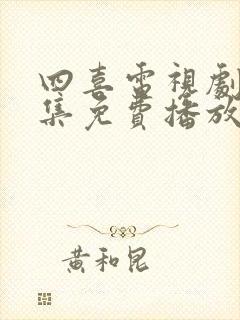 四喜電視劇
集免費播放
黃和昆